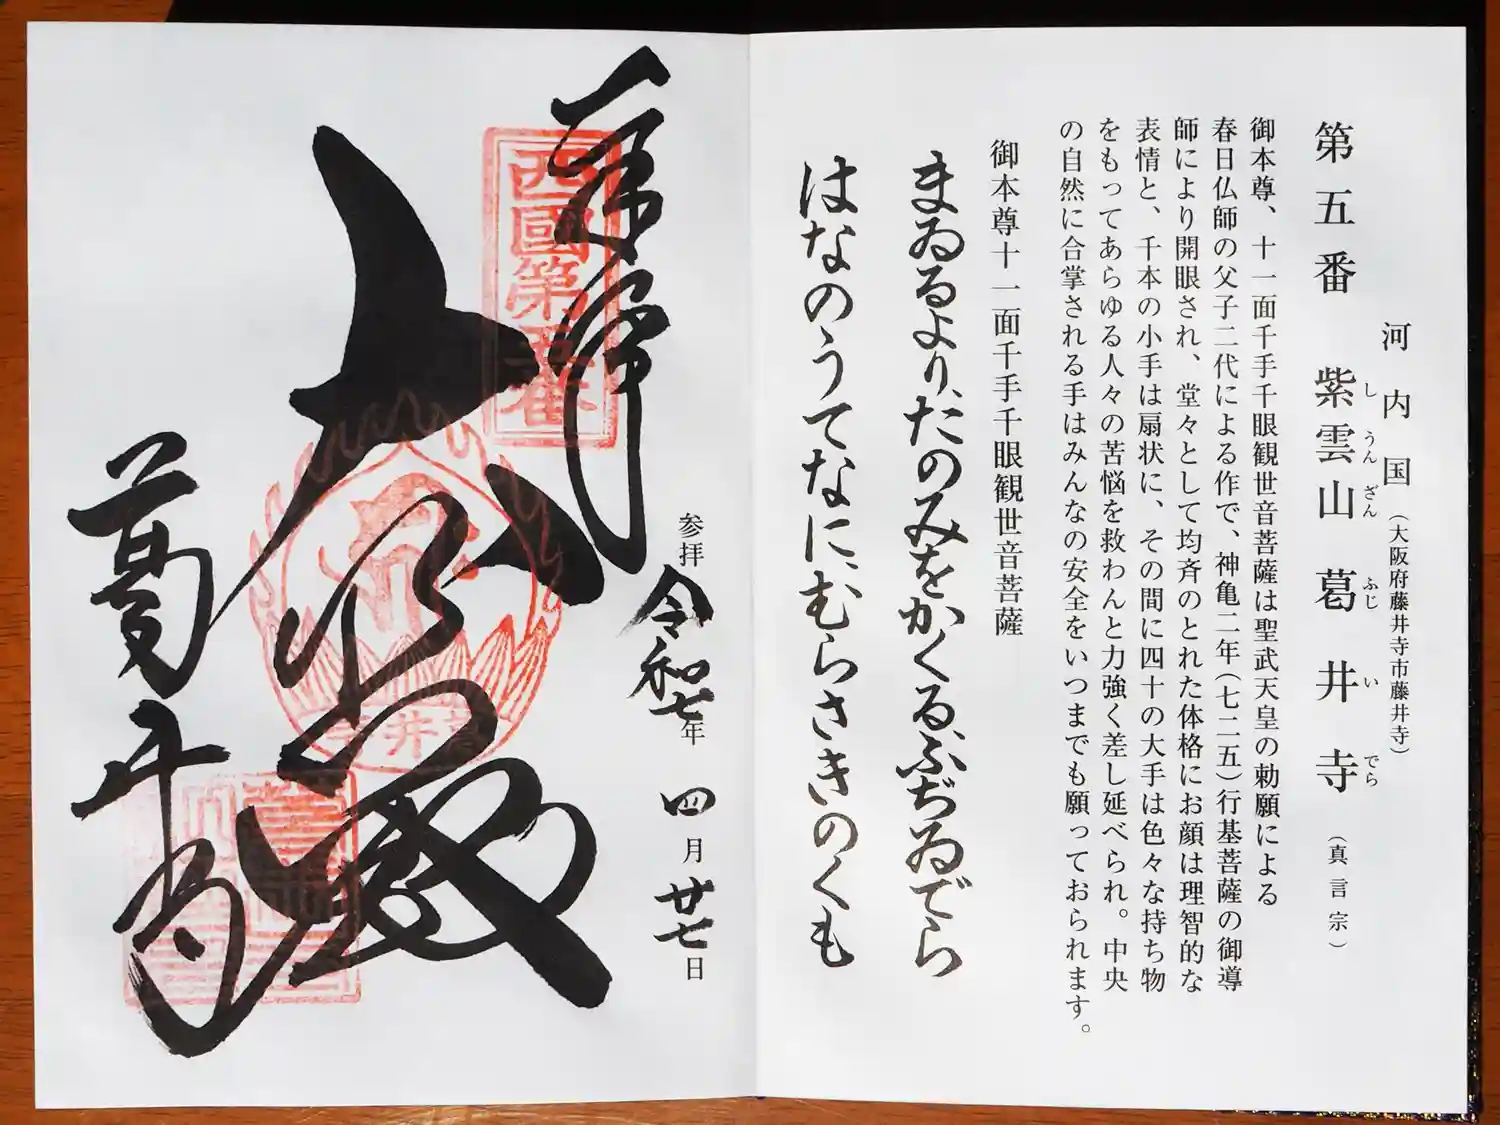 河内国(大阪府藤井寺市藤井寺)
第五番 紫雲山 葛井寺(真言宗)
し うん ざん ふじ い でら
御本尊、十一面千手千眼観世音菩薩は聖武天皇の勅願による
春日仏師の父子二代による作で、神亀二年(七二五)行基菩薩の御導
師により開眼され、堂々として均斉のとれた体格にお顔は理智的な
表情と、千本の小手は扇状に、その間に四十の大手は色々な持ち物
をもってあらゆる人々の苦悩を救わんと力強く差し延べられ。中央
の自然に合掌される手はみんなの安全をいつまでも願っておられます。
御本尊十一面千手千眼観世音菩薩
まゐるより、たのみをかくる、ふぢゐでら
はなのうてなに、むらさきのくも
奉拝
西國第五番
参拝 令和七年 四月廿七日
大悲殿
葛井寺